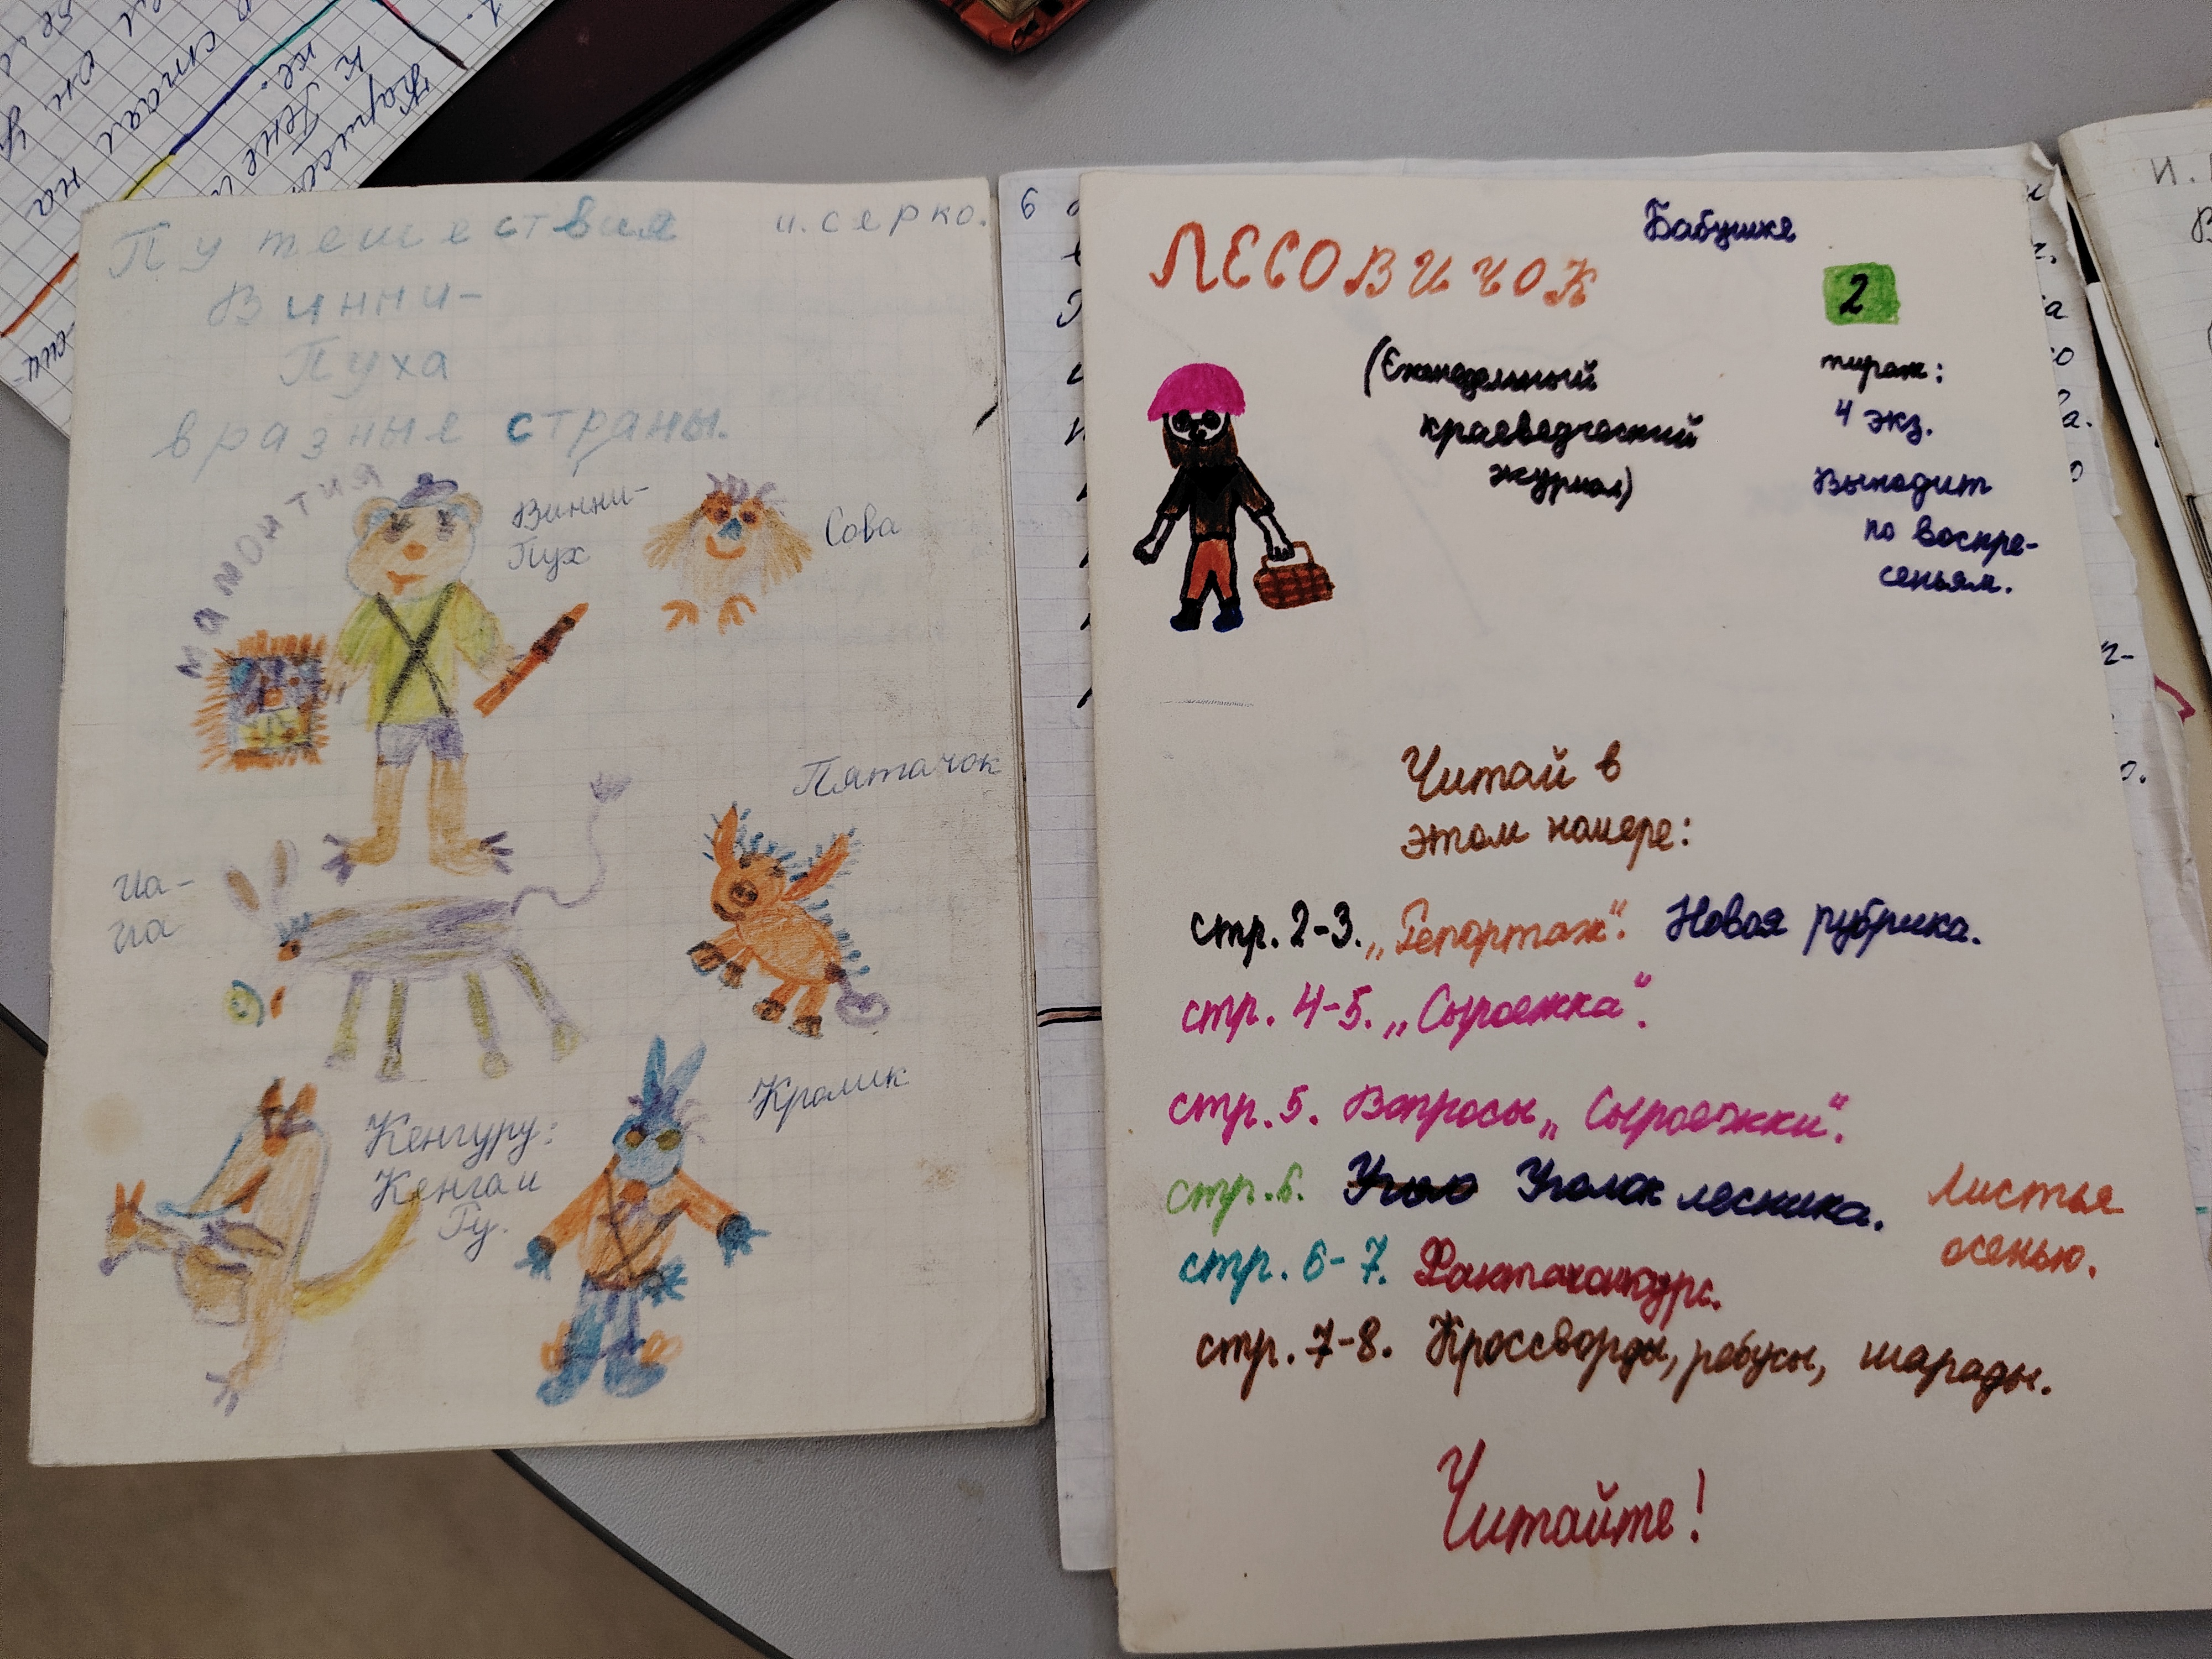 Путешествия
и. серко.
Винни-
Пуха
в разные страны.
мамонтия
Винни-
Пух
Сова
Пятачок
Иа-
Иа
Кролик
Кенгуру:
Кенга и
Ру.
6
Бабушке
ЛЕСОВИЧОК
2
(Еженедельный
краеведческий
журнал)
тираж:
4 экз.
Выходит
по воскре-
сеньям.
Читай в
этом номере:
стр. 2-3. „Репортаж“. Новая рубрика.
стр. 4-5. „Сыроежка“.
стр. 5. Вопросы „Сыроежки“.
стр. 6. Уголок лесника. Листья
осенью.
стр. 6-7. Фантаконкурс.
стр. 7-8. Кроссворды, ребусы, шарады.
Читайте!
к Гене
стоял на